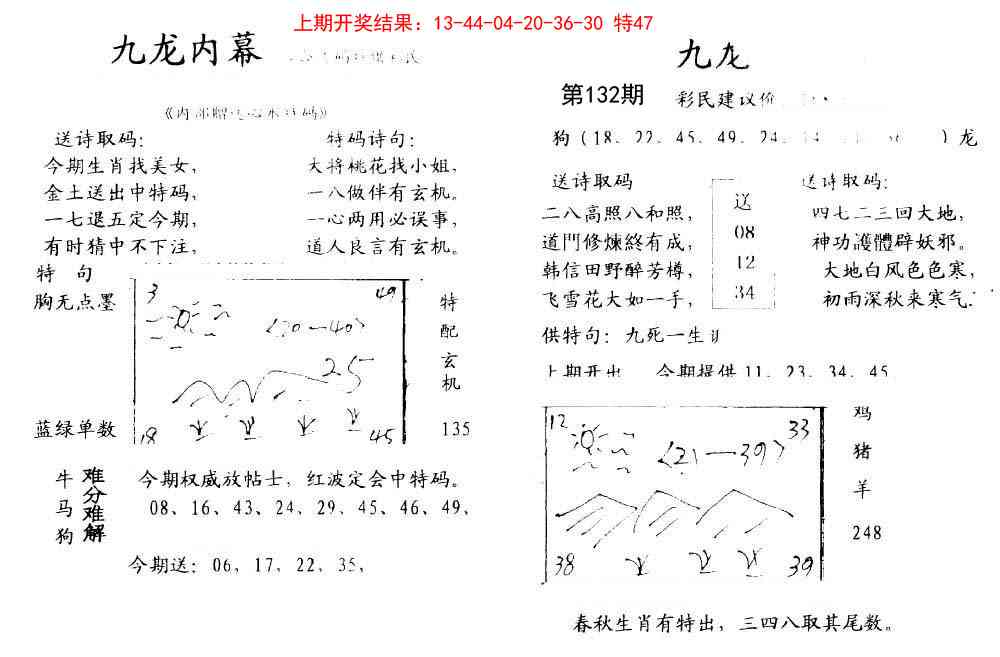 上期开奖结果：13-44-04-20-36-30 特47
九龙内幕
送诗取码:
今期生肖找美女，
金土送出中特码，
一七退五定今期，
有时猜中不下注，
特码诗句:
大将桃花找小姐，
一八做伴有玄机。
一心两用必误事，
道人良言有玄机。
特 句
胸无点墨
蓝绿单数
3 49
<20—40>
25
18 45
特
配
玄
机
135
牛
马
狗
难分难解
今期权威放帖士，红波定会中特码。
08、16、43、24、29、45、46、49、
今期送：06、17、22、35、
九龙
第132期 彩民建议价
狗（18、22、45、49、24、 ）龙
送诗取码
二八高照八和照，
道門修煉終有成，
韩信田野醉芳樽，
飞雪花大如一手，
送
08
12
34
送诗取码:
四七二三回大地，
神功護體辟妖邪。
大地白风色色寒，
初雨深秋来寒气.
供特句：九死一生
上期开出 今期提供 11、23、34、45
12 33
<21—39>
38 39
鸡
猪
羊
248
春秋生肖有特出，三四八取其尾数。